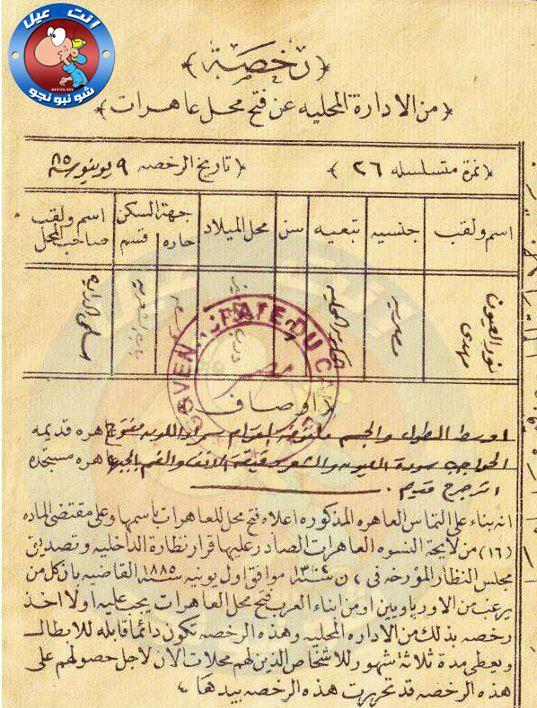 انت عيل
شونبونجو
﴿ رخصة ﴾
﴿ من الادارة المحليه عن فتح محل عاهرات ﴾
﴿ نمرة متسلسله ٢٦ ﴾ ﴿ تاريخ الرخصه ٩ يونيو سنة ٨٥
اسم ولقب جنسيه تبعيه سن محل الميلاد جهة السكن حاره قسم اسم ولقب صاحب المحل
نور العيون مهدى مصريه
GOUVEN DU CA
﴿ اوصاف ﴾
اوسط الطول والجسم القوام اللون مفتوح عاهره قديمه
الحواجب سودة العيون والشعر دقيقة الانف والفم عاهره مستجده
انه بناء على التماس العاهره المذكوره اعلاه فتح محل للعاهرات باسمها وعلى مقتضى الماده
(١٦) من لائحة النسوه العاهرات الصادر عليها قرار نظارة الداخليه وتصديق
مجلس النظار المؤرخه فى ن سنة موافق اول يونيه سنة ١٨٨٥ القاضيه بان كل من
يرغب من الاورباويين او من ابناء العرب فتح محل العاهرات يجب عليه اولا اخذ
رخصه بذلك من الاداره المحليه وهذه الرخصه تكون دائما قابله للابطال
ويعطى مدة ثلاثة شهور للاشخاص الذين لهم محلات الان لاجل حصولهم على
هذه الرخصه قد تحررت هذه الرخصه بيدها